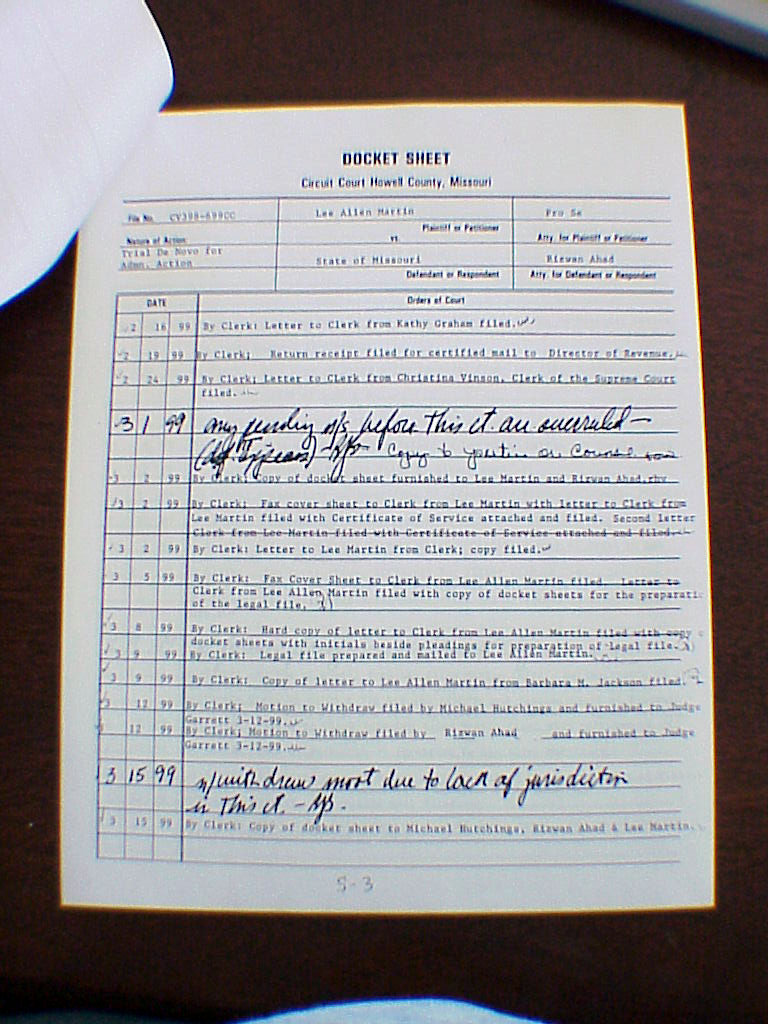 DOCKET SHEET
Circuit Court Howell County, Missouri
File No. CV398-699CC
Lee Allen Martin
Pro Se
Plaintiff or Petitioner
Nature of Action:
vs.
Atty. for Plaintiff or Petitioner
Trial De Novo for
Admn. Action
State of Missouri
Rizwan Ahad
Defendant or Respondent
Atty. for Defendant or Respondent
DATE
Orders of Court
2 16 99 By Clerk: Letter to Clerk from Kathy Graham filed.
2 19 99 By Clerk; Return receipt filed for certified mail to Director of Revenue.
2 24 99 By Clerk; Letter to Clerk from Christina Vinson, Clerk of the Supreme Court
filed.
3 1 99 any pending m/s before this ct. are overruled —
Copy to parties or Counsel
3 2 99 By Clerk; Copy of docket sheet furnished to Lee Martin and Rizwan Ahad.
3 2 99 By Clerk: Fax cover sheet to Clerk from Lee Martin with letter to Clerk from
Lee Martin filed with Certificate of Service attached and filed. Second letter
Clerk from Lee Martin filed with Certificate of Service attached and filed.
3 2 99 By Clerk: Letter to Lee Martin from Clerk; copy filed.
3 5 99 By Clerk: Fax Cover Sheet to Clerk from Lee Allen Martin filed. Letter to
Clerk from Lee Allen Martin filed with copy of docket sheets for the preparati
of the legal file.
3 8 99 By Clerk: Hard copy of letter to Clerk from Lee Allen Martin filed with copy
docket sheets with initials beside pleadings for preparation of legal file.
3 9 99 By Clerk: Legal file prepared and mailed to Lee Allen Martin.
3 9 99 By Clerk: Copy of letter to Lee Allen Martin from Barbara M. Jackson filed.
3 12 99 By Clerk; Motion to Withdraw filed by Michael Hutchings and furnished to Judge
Garrett 3-12-99.
12 99 By Clerk; Motion to Withdraw filed by Rizwan Ahad and furnished to Judge
Garrett 3-12-99.
3 15 99 m/withdraw moot due to lack of jurisdiction
in this ct. —
3 15 99 By Clerk: Copy of docket sheet to Michael Hutchings, Rizwan Ahad & Lee Martin.
S-3